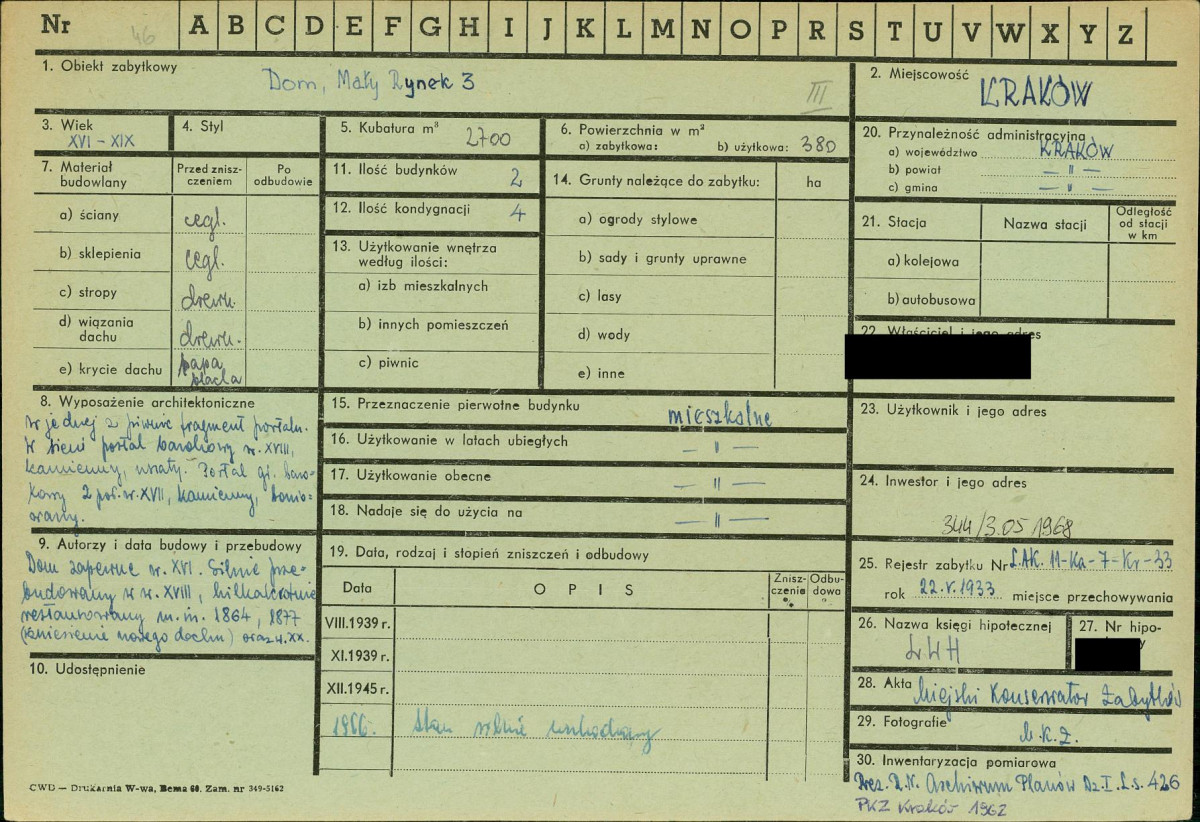 Nr 46 A B C D E F G H I J K L M N O P R S T U V W X Y Z
1. Obiekt zabytkowy
Dom, Mały Rynek 3
III
2. Miejscowość
KRAKÓW
3. Wiek
XVI - XIX
4. Styl
5. Kubatura m³ 2700
6. Powierzchnia w m²
a) zabytkowa: b) użytkowa: 380
20. Przynależność administracyjna
a) województwo KRAKÓW
b) powiat — " —
c) gmina — " —
7. Materiał budowlany
Przed zniszczeniem
Po odbudowie
a) ściany cegl.
b) sklepienia cegl.
c) stropy drewn.
d) wiązania dachu drewn.
e) krycie dachu papa blacha
11. Ilość budynków 2
12. Ilość kondygnacji 4
13. Użytkowanie wnętrza
według ilości:
a) izb mieszkalnych
b) innych pomieszczeń
c) piwnic
14. Grunty należące do zabytku: ha
a) ogrody stylowe
b) sady i grunty uprawne
c) lasy
d) wody
e) inne
21. Stacja Nazwa stacji
Odległość
od stacji
w km
a) kolejowa
b) autobusowa
22. Właściciel i jego adres
8. Wyposażenie architektoniczne
W jednej z piwnic fragment portalu.
W sieni portal barokowy w. XVIII,
kamienny, uszaty. Portal gł. baro-
kowy 2 poł. w. XVII, kamienny, bonio-
owany.
9. Autorzy i data budowy i przebudowy
Dom zapewne w. XVI. Silnie prze-
budowany w w. XVIII, kilkakrotnie
restaurowany m.in. 1864, 1877
(wniesienie nowego dachu) oraz w. XX.
10. Udostępnienie
15. Przeznaczenie pierwotne budynku mieszkalne
16. Użytkowanie w latach ubiegłych — " —
17. Użytkowanie obecne — " —
18. Nadaje się do użycia na — " —
19. Data, rodzaj i stopień zniszczeń i odbudowy
Data O P I S
Zniszczenie %
Odbudowa %
VIII.1939 r.
XI.1939 r.
XII.1945 r.
1966.
23. Użytkownik i jego adres
24. Inwestor i jego adres
344/3.05 1968
25. Rejestr zabytku Nr L.AK. 11-Ka-7-Kr-33
rok 22.V.1933 miejsce przechowywania
26. Nazwa księgi hipotecznej
LWH
27. Nr hipo-
28. Akta Miejski Konserwator Zabytków
29. Fotografie M.K.Z.
30. Inwentaryzacja pomiarowa
Prez. R.N. Archiwum Planów Dz. I. L.s. 426
PKZ Kraków 1962
CWD — Drukarnia W-wa, Bema 60. Zam. nr 349-5162